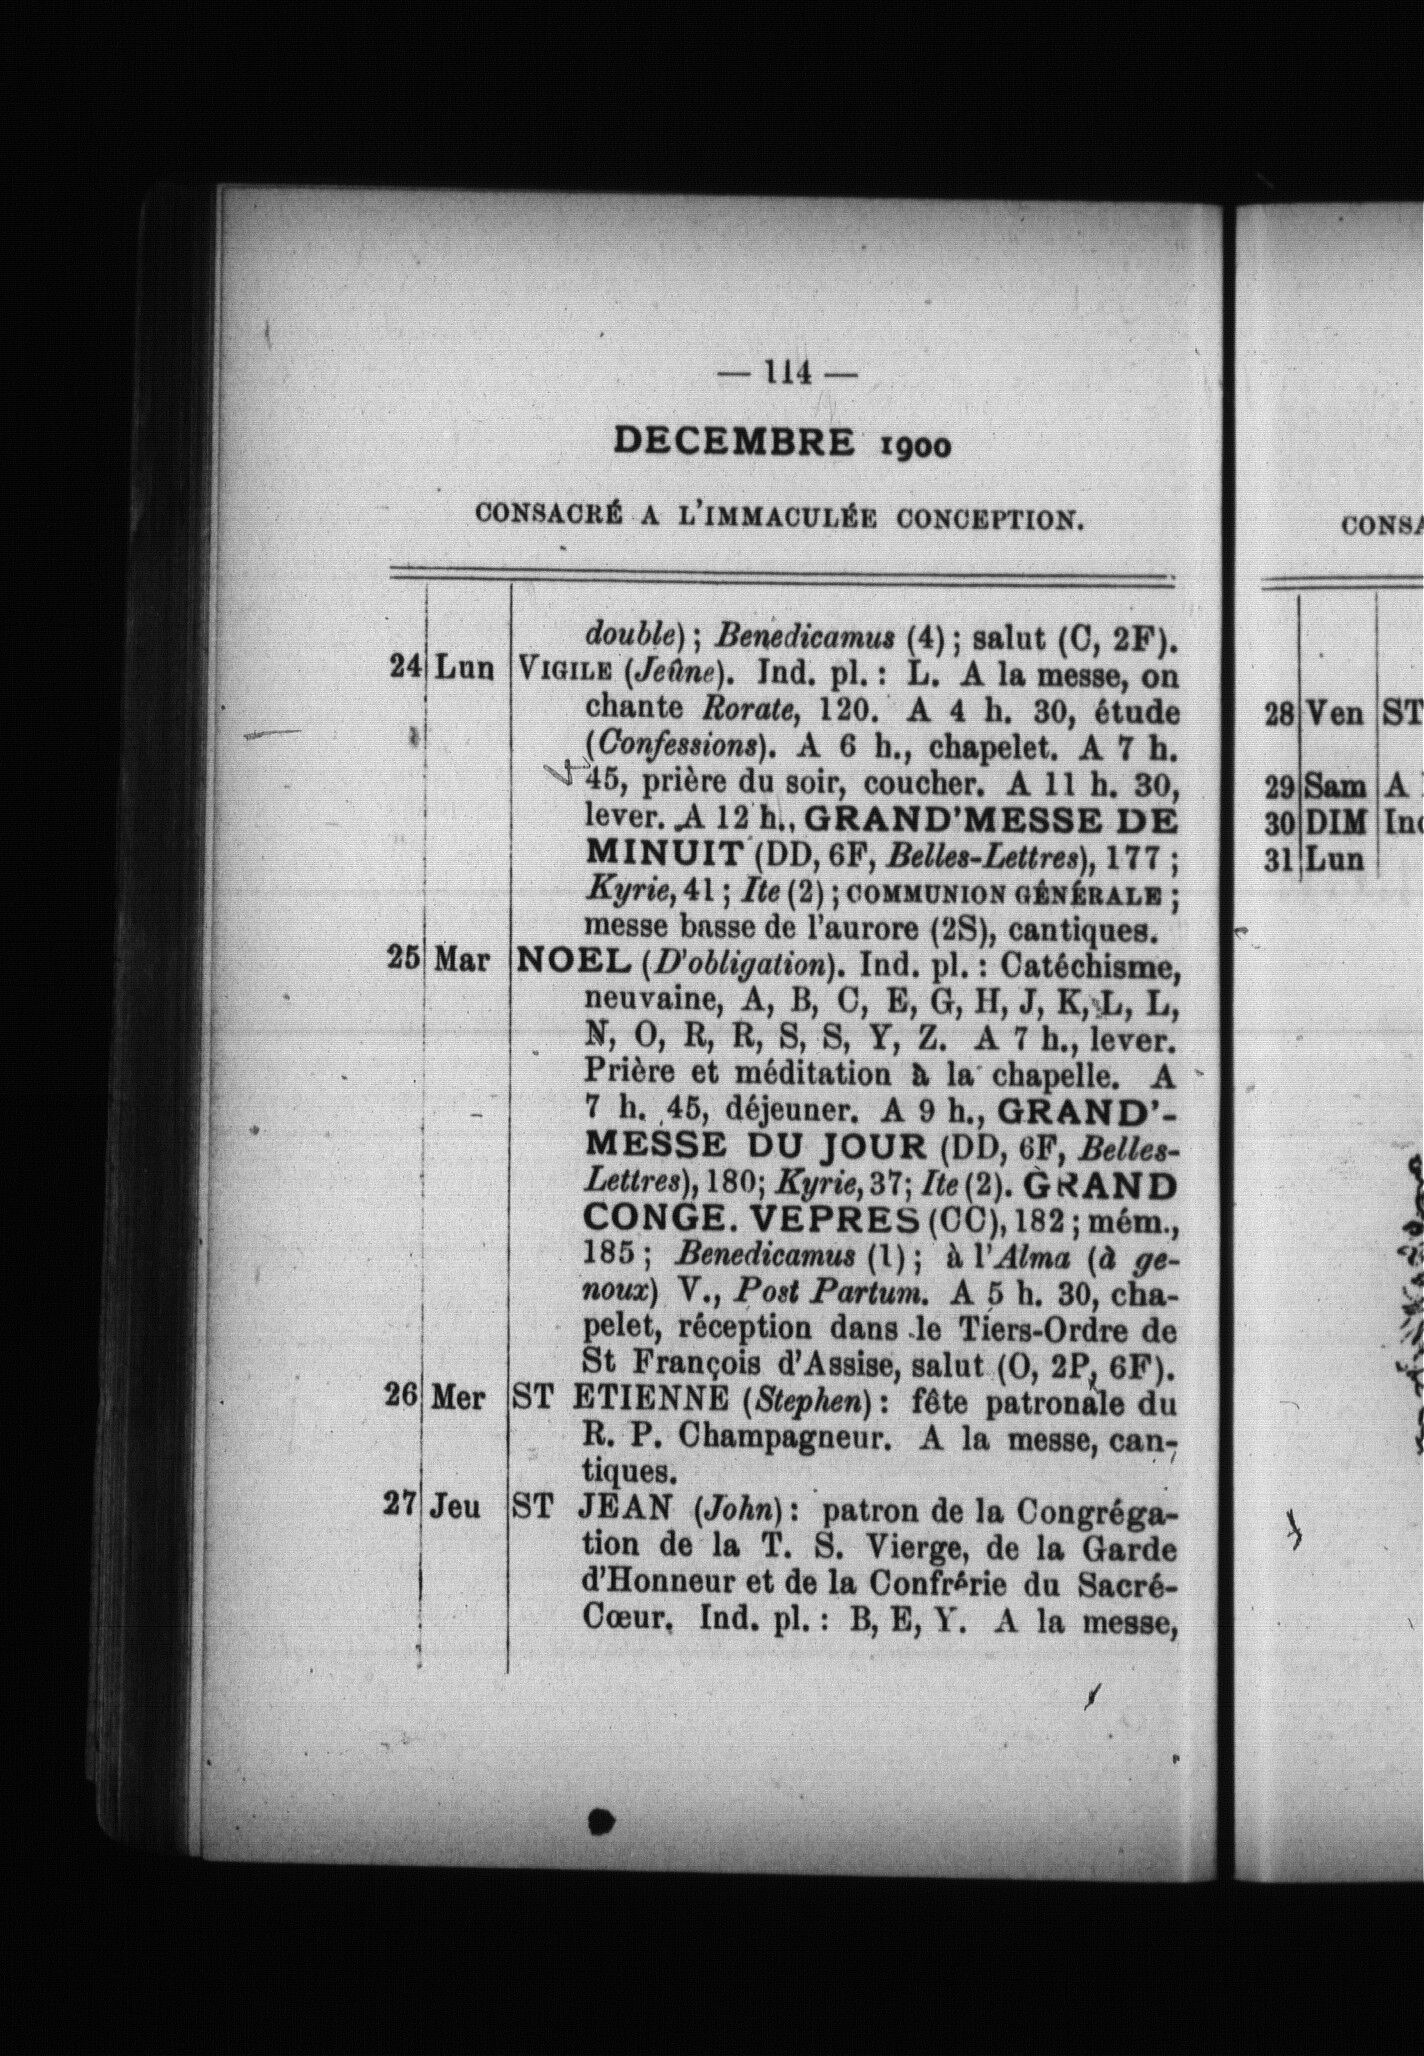 — 114 —
DECEMBRE 1900
CONSACRÉ A L'IMMACULÉE CONCEPTION.
double) ; Benedicamus (4) ; salut (C, 2F).
24 Lun VIGILE (Jeûne). Ind. pl. : L. A la messe, on
chante Rorate, 120. A 4 h. 30, étude
(Confessions). A 6 h., chapelet. A 7 h.
45, prière du soir, coucher. A 11 h. 30,
lever. A 12 h., GRAND'MESSE DE
MINUIT (DD, 6F, Belles-Lettres), 177 ;
Kyrie, 41 ; Ite (2) ; COMMUNION GÉNÉRALE ;
messe basse de l'aurore (2S), cantiques.
25 Mar NOEL (D'obligation). Ind. pl. : Catéchisme,
neuvaine, A, B, C, E, G, H, J, K, L, L,
N, O, R, R, S, S, Y, Z. A 7 h., lever.
Prière et méditation à la chapelle. A
7 h. 45, déjeuner. A 9 h., GRAND'-
MESSE DU JOUR (DD, 6F, Belles-
Lettres), 180; Kyrie, 37; Ite (2). GRAND
CONGE. VEPRES (CC), 182 ; mém.,
185 ; Benedicamus (1) ; à l'Alma (à ge-
noux) V., Post Partum. A 5 h. 30, cha-
pelet, réception dans le Tiers-Ordre de
St François d'Assise, salut (O, 2P, 6F).
26 Mer ST ETIENNE (Stephen) : fête patronale du
R. P. Champagneur. A la messe, can-
tiques.
27 Jeu ST JEAN (John) : patron de la Congréga-
tion de la T. S. Vierge, de la Garde
d'Honneur et de la Confrérie du Sacré-
Cœur. Ind. pl. : B, E, Y. A la messe,
CONSA
28 Ven ST
29 Sam A
30 DIM Ind
31 Lun